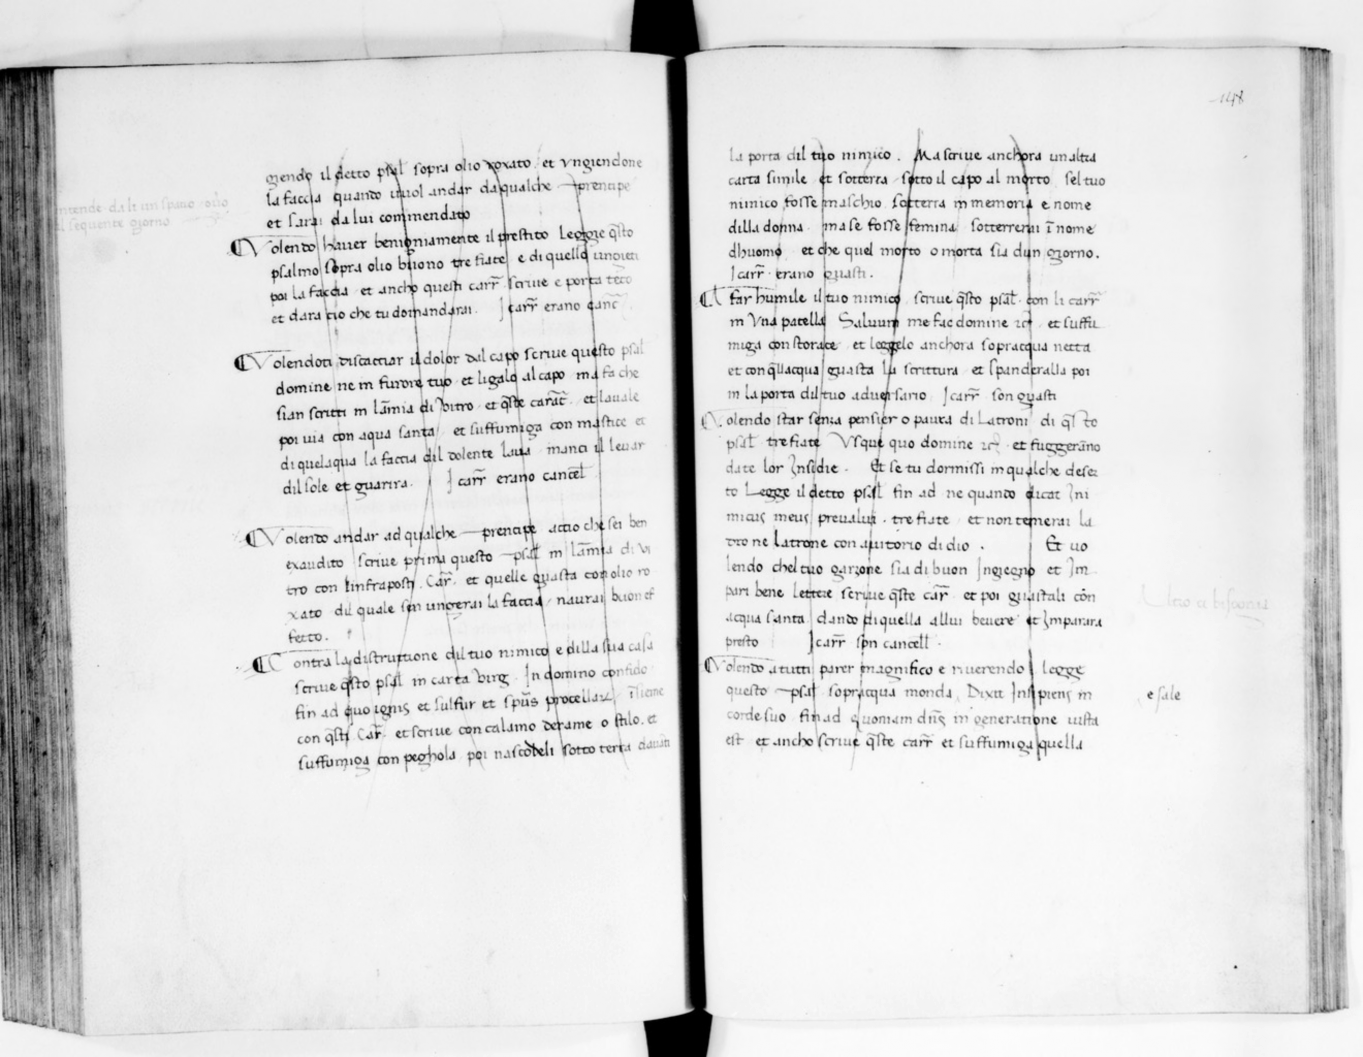 gendo il detto psal sopra olio roxato et vngiendone
la faccia quando vuol andar da qualche prencipe
et sarai da lui commendato
Volendo hauer benigniamente il prestito Leggie q̄sto
psalmo sopra olio buono tre fiate e di quello ungiti
poi la faccia et ancho questi carr̄ scriue e porta teco
et dara cio che tu domandarai. I carr̄ erano canc̄
Volendoti discacciar il dolor dal capo scriue questo psal
domine ne in furore tuo et ligalo al capo ma fa che
sian scritti in lāmia di vitro et q̄ste carat̄ et lauale
poi uia con aqua santa et suffumiga con mastice et
di quelaqua la faccia dil dolente laua inanci il leuar
dil sole et guarira. I carr̄ erano cancel̄
Volendo andar ad qualche prencipe accio che sei ben
exaudito scriue prima questo psal in lāmia di vi
tro con linfraposti Car̄ et quelle guasta con olio ro
xato dil quale sen ungerai la faccia naurai buon ef
fetto.
Contra la distruttione dil tuo nimico e dilla sua casa
scriue q̄sto psal in carta virg. In domino confido
fin ad quo ignis et sulfur et spūs procellar̄ īsieme
con q̄sti Car̄ et scriue con calamo derame o stilo. et
suffumiga con peghola poi nascōdeli sotto terra dauāti
148
la porta dil tuo nimico. Ma scriue anchora unaltra
carta simile et sotterra sotto il capo al morto sel tuo
nimico fosse maschio sotterra in memoria e nome
dilla donna ma se fosse femina sotterrerai ī nome
dhuomo et che quel morto o morta sia dun giorno.
I carr̄ erano guasti.
A far humile il tuo nimico scriue q̄sto psal̄ con li carr̄
in vna patella Saluum me fac domine et suffu
miga con storace et leggelo anchora sopracqua netta
et con q̄llacqua guasta la scrittura et spanderalla poi
in la porta dil tuo aduersario I carr̄ son guasti
Volendo star senza pensier o paura di Latroni di q̄sto
psal̄ tre fiate Vsque quo domine et fuggerāno
date lor Insidie. Et se tu dormissi in qualche deser
to Legge il detto psal fin ad ne quando dicat Ini
micus meus preualui tre fiate et non temerai la
drone latrone con aiutorio di dio. Et uo
lendo chel tuo garzone sia di buon Ingiegno et Im
pari bene lettere scriue q̄ste car̄ et poi guastali cōn
acqua santa dando di quella allui beuere et Imparara
presto I carr̄ son cancell̄
Volendo a tutti parer magnifico e riuerendo legge
questo psal sopracqua monda Dixit Insipiens in e sale
corde suo fin ad quoniam dn̄s in generatione iusta
est et ancho scriue q̄ste carr̄ et suffumiga quella